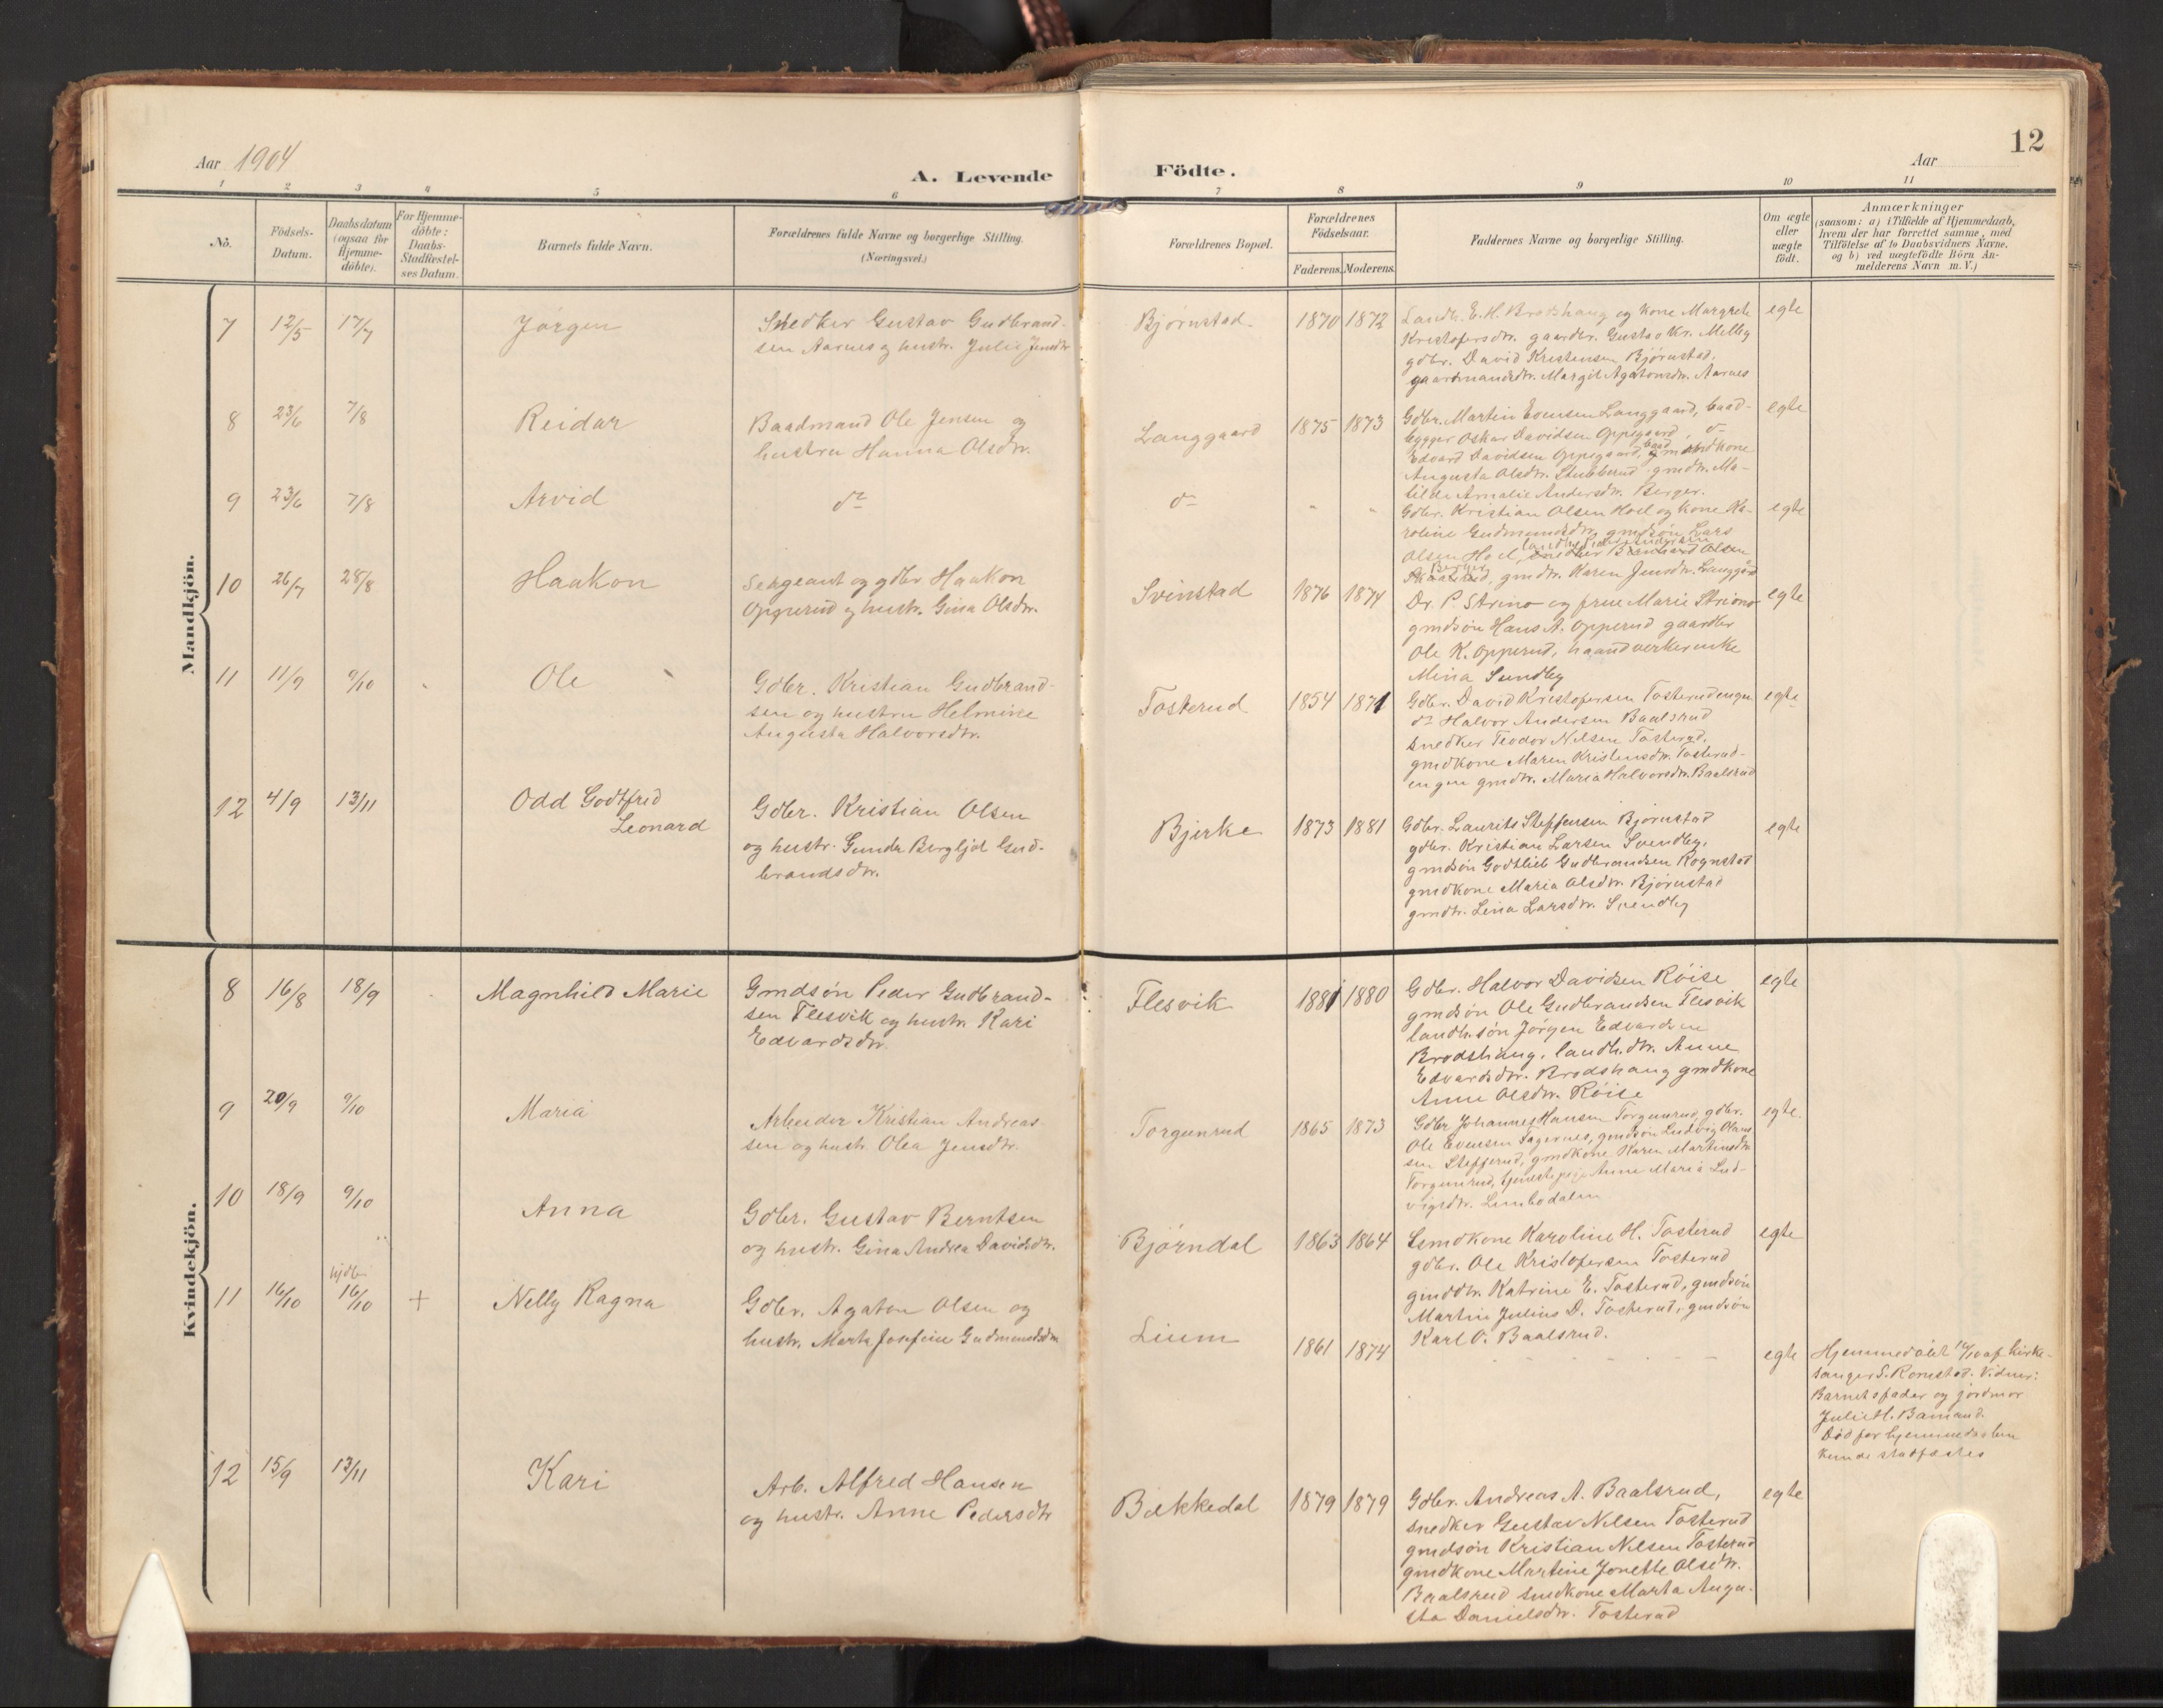 12
Aar 1904
Aar
A. Levende
Födte.
1 2 3 4 5 6 7 8 9 10 11
No.
Födsels-
Datum.
Daabsdatum
(ogsaa for
Hjemme-
döbte).
For Hjemme-
döbte:
Daabs-
Stadfæstel-
ses Datum.
Barnets fulde Navn.
Forældrenes fulde Navne og borgerlige Stilling.
(Næringsvei.)
Forældrenes Bopæl.
Forældrenes
Födselsaar.
Faderens. Moderens.
Faddernes Navne og borgerlige Stilling.
Om ægte
eller
uægte
födt.
Anmærkninger
(saasom: a) i Tilfælde af Hjemmedaab,
hvem der har forrettet samme, med
Tilföielse af to Daabsvidners Navne,
og b) ved uægtefödte Börn An-
melderens Navn m. V.)
Mandkjön.
7 12/5 17/7 Jørgen
Snedker Gustav Gudbrand-
sen Aarnes og hustr. Julie Jensdtr
Bjørnstad. 1870 1872
Landh. E. H. Brodshaug og kone Margrete
Kristofersdtr. gaardbr. Gustav Kr. Melby
gdbr. David Kristensen Bjørnstad.
gaardmandsdtr. Margit Agatonsdtr. Aarnes
egte
8 23/6 7/8 Reidar
Baadmand Ole Jensen og
hustru Hanna Olsdtr.
Langgaard 1875 1873
Gdbr. Martin Evensen Langgaard, baad-
bygger Oskar Davidsen Oppegaard, do
Edvard Davidsen Oppegaard, gmdkone
Augusta Olsdtr. Stubberud gmdtr. Ma-
tilde Amalie Andersdtr. Berger.
egte
9 23/6 7/8 Arvid
do
do " "
Gdbr. Kristian Olsen Hoel og kone Ka-
roline Gudmundsdtr, gmdsøn Lars
Olsen Hoel, snedker Bernhard Olsen
Skaalerud, gmdtr. Karen Jensdtr. Langgård
egte
10 26/7 28/8 Haakon
Sergeant og gdbr Haakon
Opperud og hustr. Gina Olsdtr.
Svinstad 1876 1874
Dr. P. Strino og frue Marie Strino
gmdsøn Hans A. Opperud gaardbr
Ole K. Opperud, haandverkerenke
Mina Sundby
egte
11 11/9 9/10 Ole
Gdbr. Kristian Gudbrand-
sen og hustru Helmine
Augusta Halvorsdtr.
Tosterud 1854 1871
Gdbr. David Kristofersen Tosterudengen
do Halvor Andersen Baalsrud
snedker Teodor Nilsen Tosterud.
gmdkone Maren Kristensdtr. Tosterud-
engen gmdtr. Maria Halvorsdtr. Baalsrud
egte
12 4/9 13/11 Odd Godtfred
Leonard
Gdbr. Kristian Olsen
og hustr. Gunda Bergljot Gud-
brandsdtr.
Bjerke 1873 1881
Gdbr. Laurits Steffensen Bjørnstad
gdbr. Kristian Larsen Svendby.
gmdsøn Godtlieb Gudbrandsen Rognstad
gmdkone Maria Olsdtr. Bjørnstad
gmdtr. Lina Larsdtr. Svendby
egte
Kvindekjön.
8 16/8 18/9 Magnhild Marie
Gmdsøn Peder Gudbrand-
sen Flesvik og hustr. Kari
Edvardsdtr.
Flesvik 1881 1880
Gdbr. Halvor Davidsen Røise
gmdsøn Ole Gudbrandsen Flesvik
landh.søn Jørgen Edvardsen
Brodshaug, landh.dtr. Anne
Edvardsdtr. Brodshaug gmdkone
Anne Olsdtr. Røise
egte
9 20/9 9/10 Maria
Arbeider Kristian Andreas-
sen og hustr. Olea Jensdtr.
Torgunrud 1865 1873
Gdbr Johannes Hansen Torgunrud, gdbr.
Ole Evensen Fagernes, gmdsøn Ludvig Olaus-
sen Stefferud, gmdkone Karen Martinsdtr
Torgunrud, tjenestepige Anne Maria Lud-
vigsdtr. Limbodalen
egte.
10 18/9 9/10 Anna
Gdbr. Gustav Berntsen
og hustr. Gina Andrea Davidsdtr.
Bjørndal 1863 1864
Gmdkone Karoline H. Tosterud
gdbr. Ole Kristofersen Tosterud
gmddtr. Katrine E. Tosterud, gmdsøn
Martin Julius D. Tosterud, gmdsøn
Karl O. Baalsrud.
egte
11 16/10 hjdbt 16/10 + Nelly Ragna
Gdbr. Agaton Olsen og
hustr. Marta Josefine Gudmundsdtr
Lium 1861 1874
egte
Hjemmedøbt 16/10 af kirke-
sanger S. Romstad. Vidner:
Barnets fader og jordmor
Julie H. Bamrud.
Død før hjemmedaaben
kunde stadfæstes
12 15/9 13/11 Kari
Arb. Alfred Hansen
og hustr. Anne Pedersdtr
Bækkedal 1879 1879
Gdbr. Andreas A. Baalsrud,
snedker Gustav Nilsen Tosterud
gmdsøn Kristian Nilsen Tosterud
gmdkone Martine Jonette Olsdtr.
Baalsrud smedkone Marta Augu-
sta Danielsdtr. Tosterud
egte